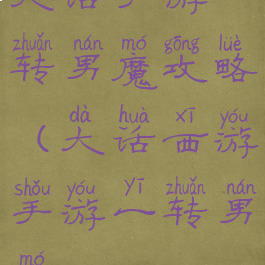 大话手游
zhuǎn nán mó gōng lüè
转男魔攻略
dà huà xī yóu
（大话西游
shǒu yóu yī zhuǎn nán
手游一转男
mó